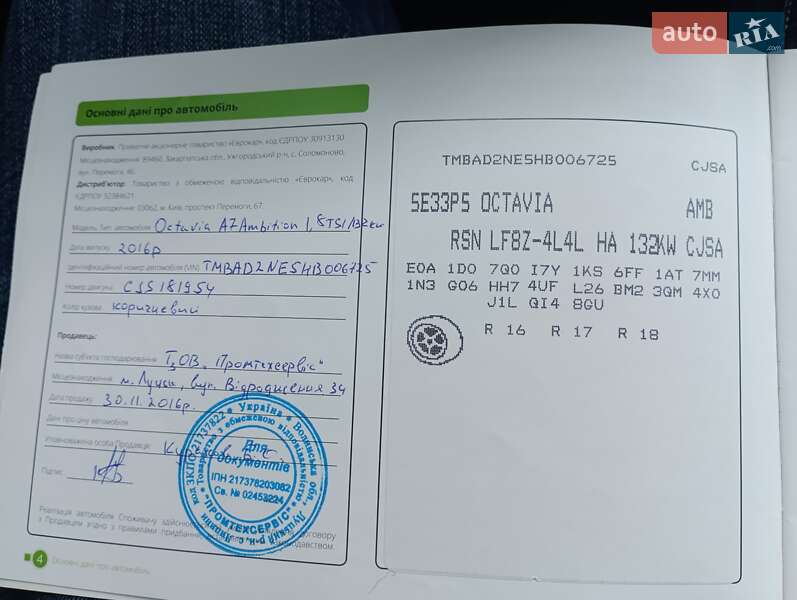 auto RIA .com
Основні дані про автомобіль
Виробник: Приватне акціонерне товариство «Єврокар», код ЄДРПОУ 30913130
Місцезнаходження: 89460, Закарпатська обл., Ужгородський р-н, с. Соломоново,
вул. Перемоги, 46.
Дистриб'ютор: Товариство з обмеженою відповідальністю «Єврокар», код
ЄДРПОУ 32384621
Місцезнаходження: 03062, м. Київ, проспект Перемоги, 67.
Модель, Тип автомобіля Octavia A7 Ambition 1,8 TSI/132 kw
Дата випуску 2016р
Ідентифікаційний номер автомобіля (VIN) TMBAD2NE5HB006725
Номер двигуна CJS181954
Колір кузова коричневий
Продавець:
Назва суб'єкта господарювання ТзОВ „Промтехсервіс"
Місцезнаходження м. Луцьк, вул. Відродження 34
Дата продажу 30.11.2016р.
Дані про ціну автомобіля
Уповноважена особа Продавця
Підпис
Реалізація автомобіля Споживачу здійснює договору
з Продавцем згідно з правилами придбання законодавством.
4 Основні дані про автомобіль
Україна Волинська обл., Луцький р-н, с. Липини код ЗКПО 21737822
Товариство з обмеженою відповідальністю "ПРОМТЕХСЕРВІС"
Для
документів
ІПН 217378203082
Св. № 02453224
TMBAD2NE5HB006725 CJSA
5E33P5 OCTAVIA AMB
RSN LF8Z-4L4L HA 132KW CJSA
E0A 1D0 7Q0 I7Y 1KS 6FF 1AT 7MM
1N3 G06 HH7 4UF L26 BM2 3QM 4X0
J1L QI4 8GU
R 16 R 17 R 18